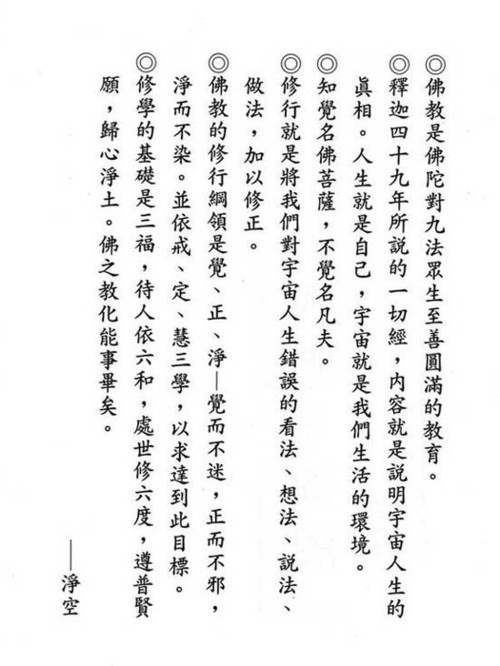 ◎佛教是佛陀對九法眾生至善圓滿的教育。
◎釋迦四十九年所說的一切經，內容就是說明宇宙人生的
真相。人生就是自己，宇宙就是我們生活的環境。
◎知覺名佛菩薩，不覺名凡夫。
◎修行就是將我們對宇宙人生錯誤的看法、想法、說法、
做法，加以修正。
◎佛教的修行綱領是覺、正、淨—覺而不迷，正而不邪，
淨而不染。並依戒、定、慧三學，以求達到此目標。
◎修學的基礎是三福，待人依六和，處世修六度，遵普賢
願，歸心淨土。佛之教化能事畢矣。
—淨空